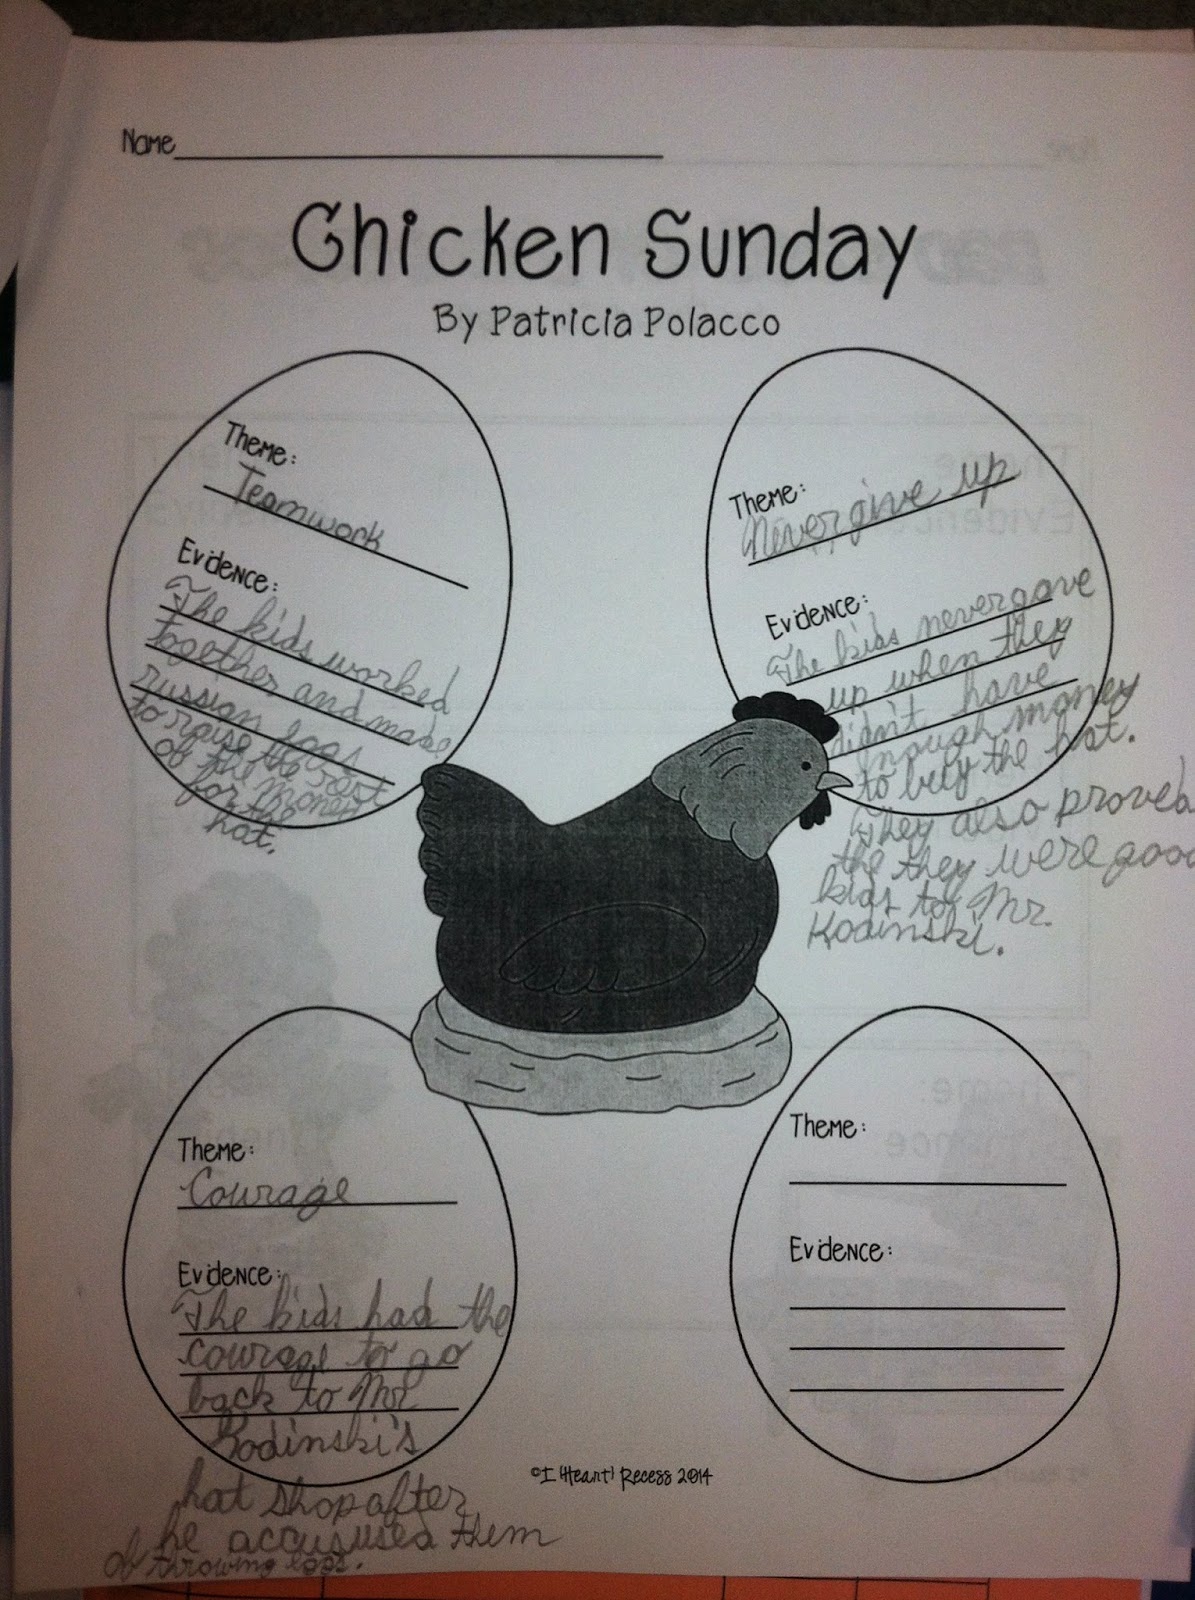 Name
Chicken Sunday
By Patricia Polacco
Theme:
Teamwork
Evidence:
The kids worked
together and made
russian eggs
to raise the rest
of the money
for the
hat.
Theme:
Never give up
Evidence:
The kids never gave
up when they
didn't have
enough money
to buy the hat.
They also proved
the they were good
kids to Mr.
Kodinski.
Theme:
Courage
Evidence:
The kids had the
courage to go
back to Mr.
Kodinski's
hat shop after
he accusused them
of throwing eggs.
Theme:
Evidence:
©I {Heart} Recess 2014